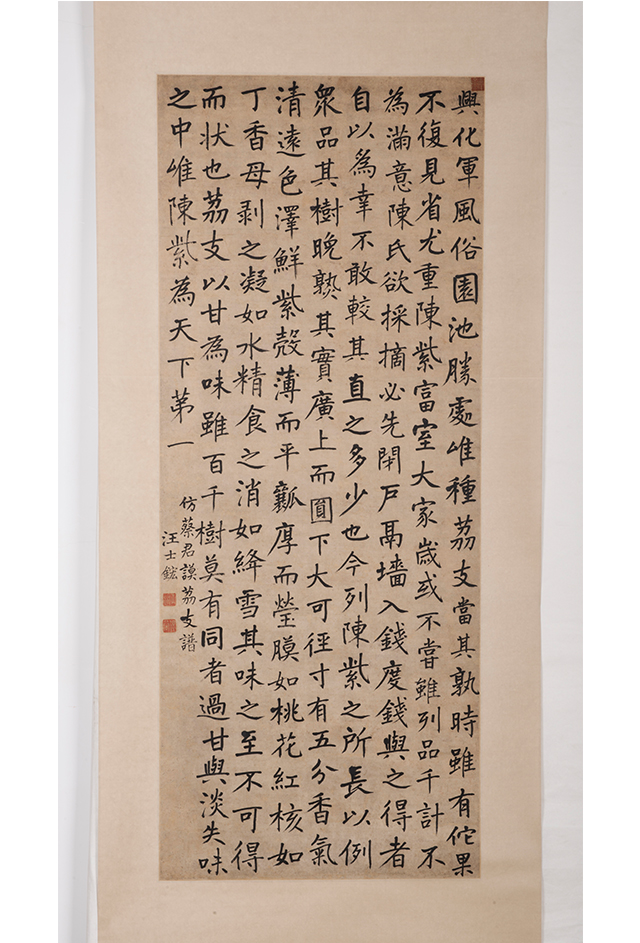 興化軍風俗園池勝處唯種荔支當其孰時雖有佗果
不復見省尤重陳紫富室大家歲或不嘗雖列品千計不
為滿意陳氏欲採摘必先閉戸鬲墻入錢度錢與之得者
自以爲幸不敢較其直之多少也今列陳紫之所長以例
衆品其樹晚熟其實廣上而圓下大可徑寸有五分香氣
清遠色澤鮮紫殼薄而平瓤厚而瑩膜如桃花紅核如
丁香母剥之凝如水精食之消如絳雪其味之至不可得
而状也荔支以甘為味雖百千樹莫有同者過甘與淡失味
之中唯陳紫為天下第一
仿蔡君謨荔支譜
汪士鋐